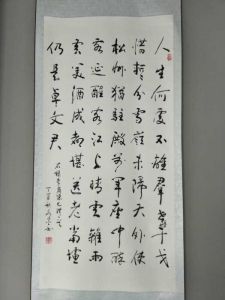 人生何處不離羣世路干戈
惜暫分雪嶺未歸天外使
松州猶駐殿前軍座中醉
客延醒客江上晴雲雜雨
雲美酒成都堪送老當壚
仍是卓文君